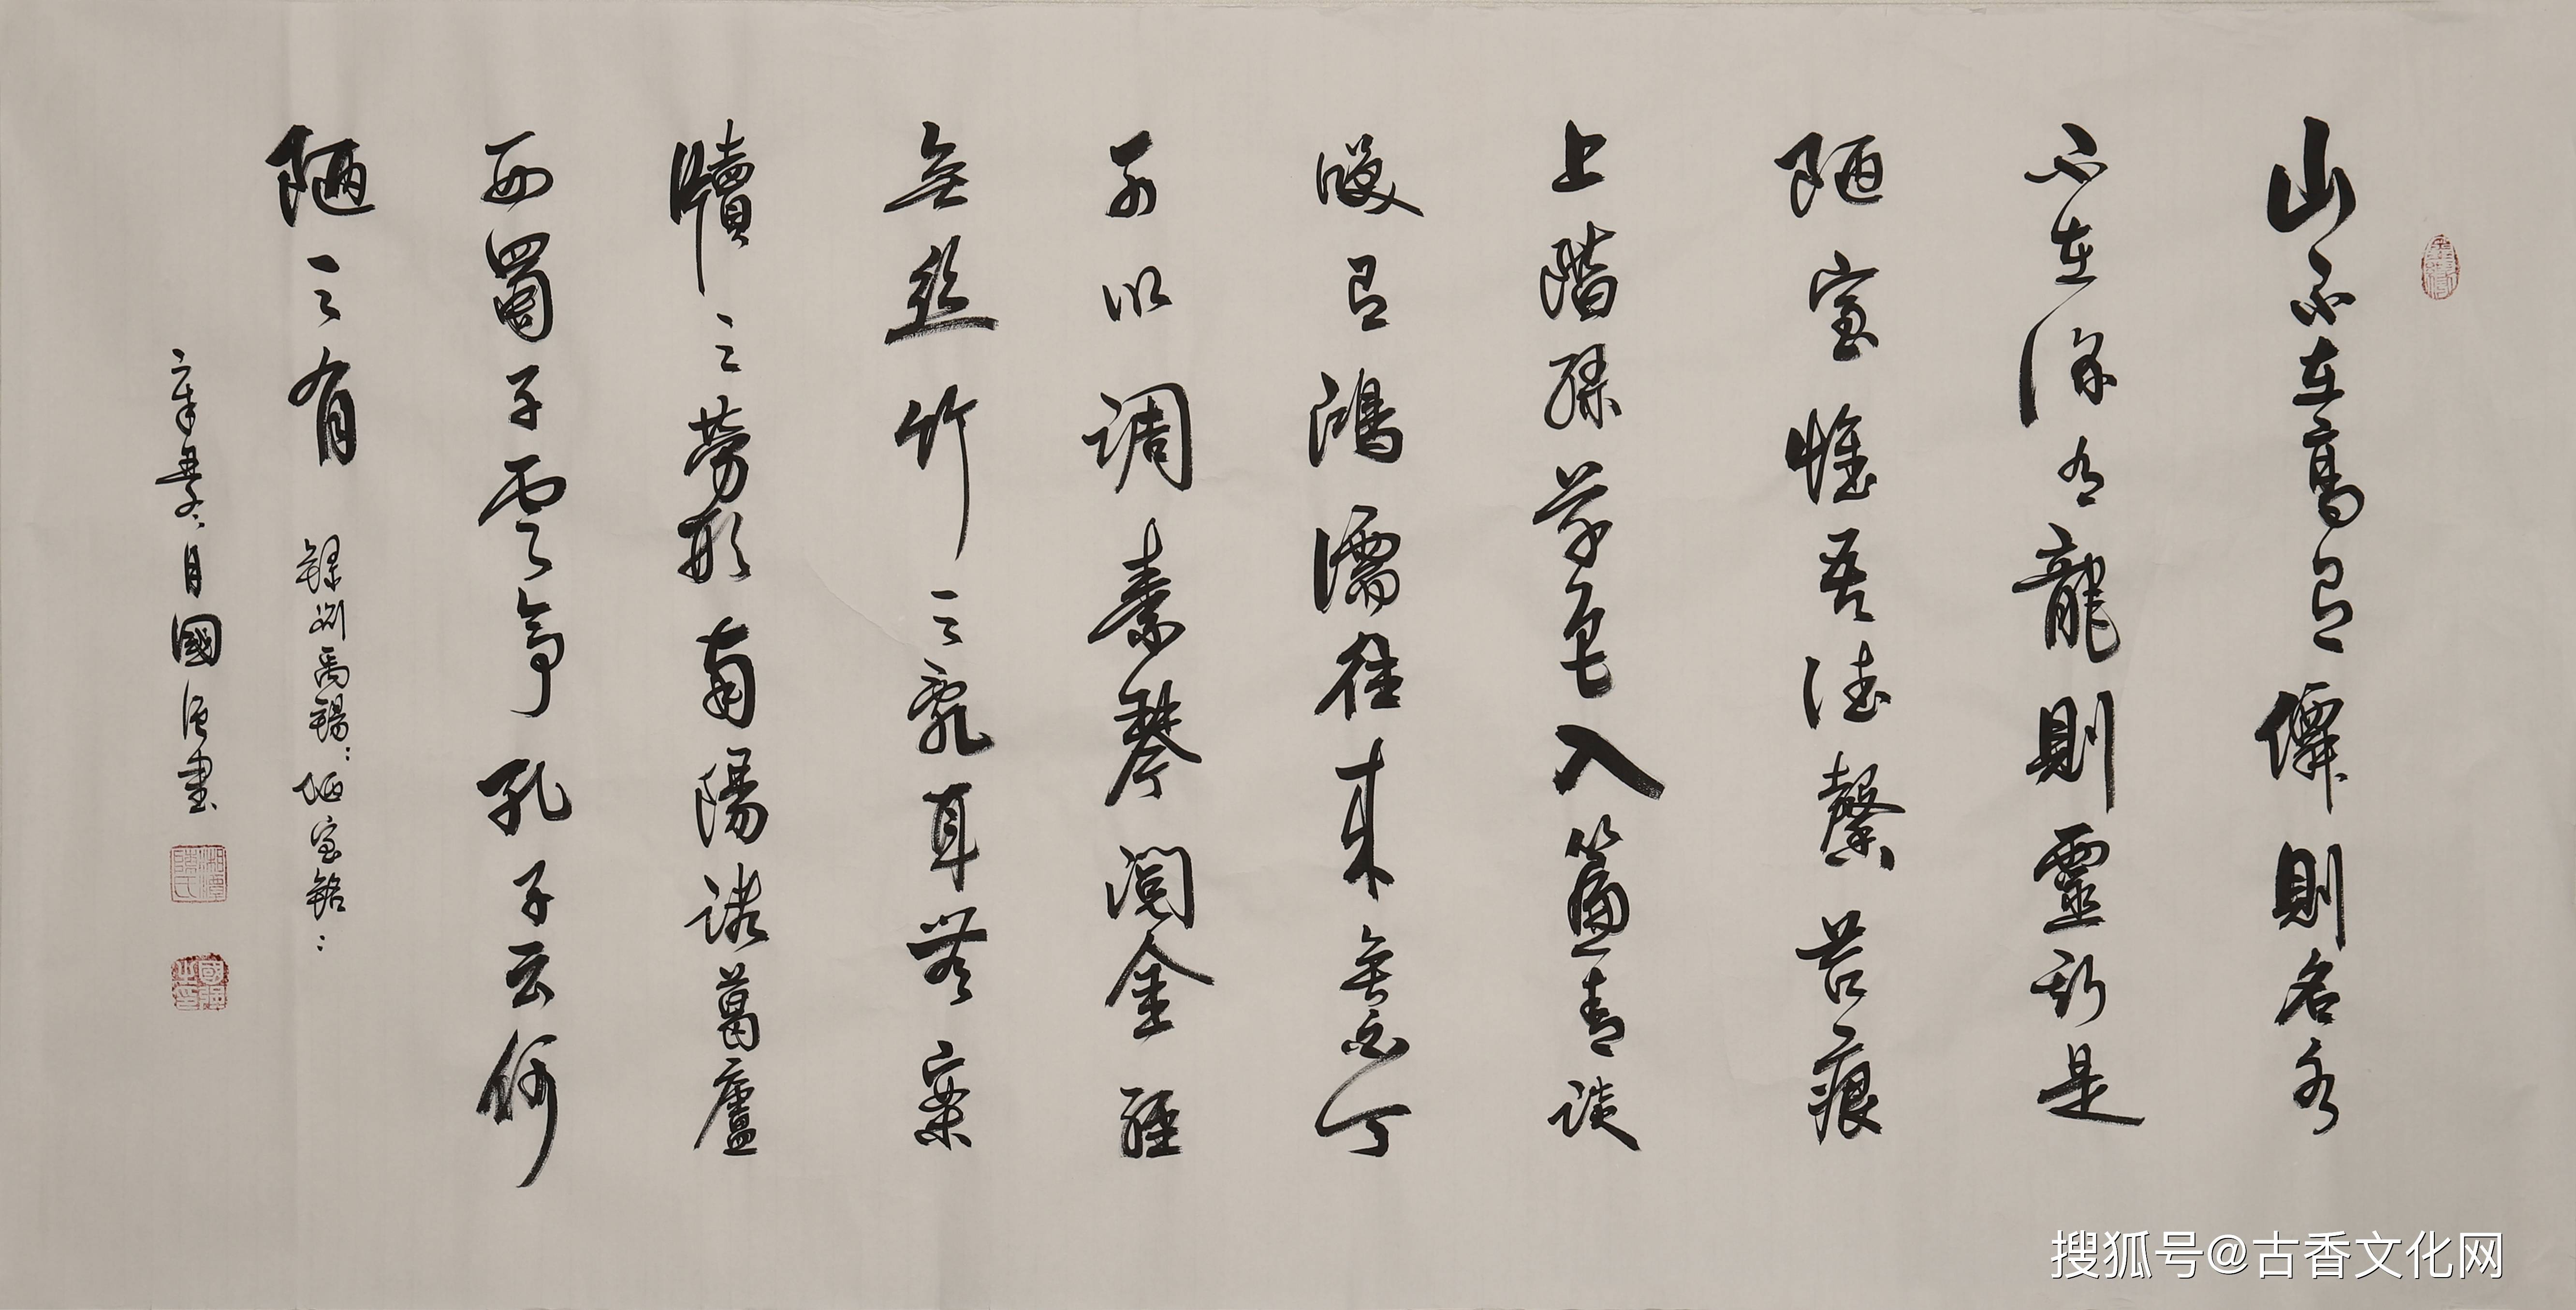 山不在高有僊則名水
不在深有龍則靈斯是
陋室惟吾德馨苔痕
上階緑草色入簾青談
咲有鴻儒往来無白丁
可以調素琴閲金經
無丝竹之乱耳無案
牘之勞形南陽諸葛廬
西蜀子雲亭孔子云何
陋之有
錄劉禹錫：陋室銘：
辛丑冬月國强書
國强之印
搜狐号@古香文化网